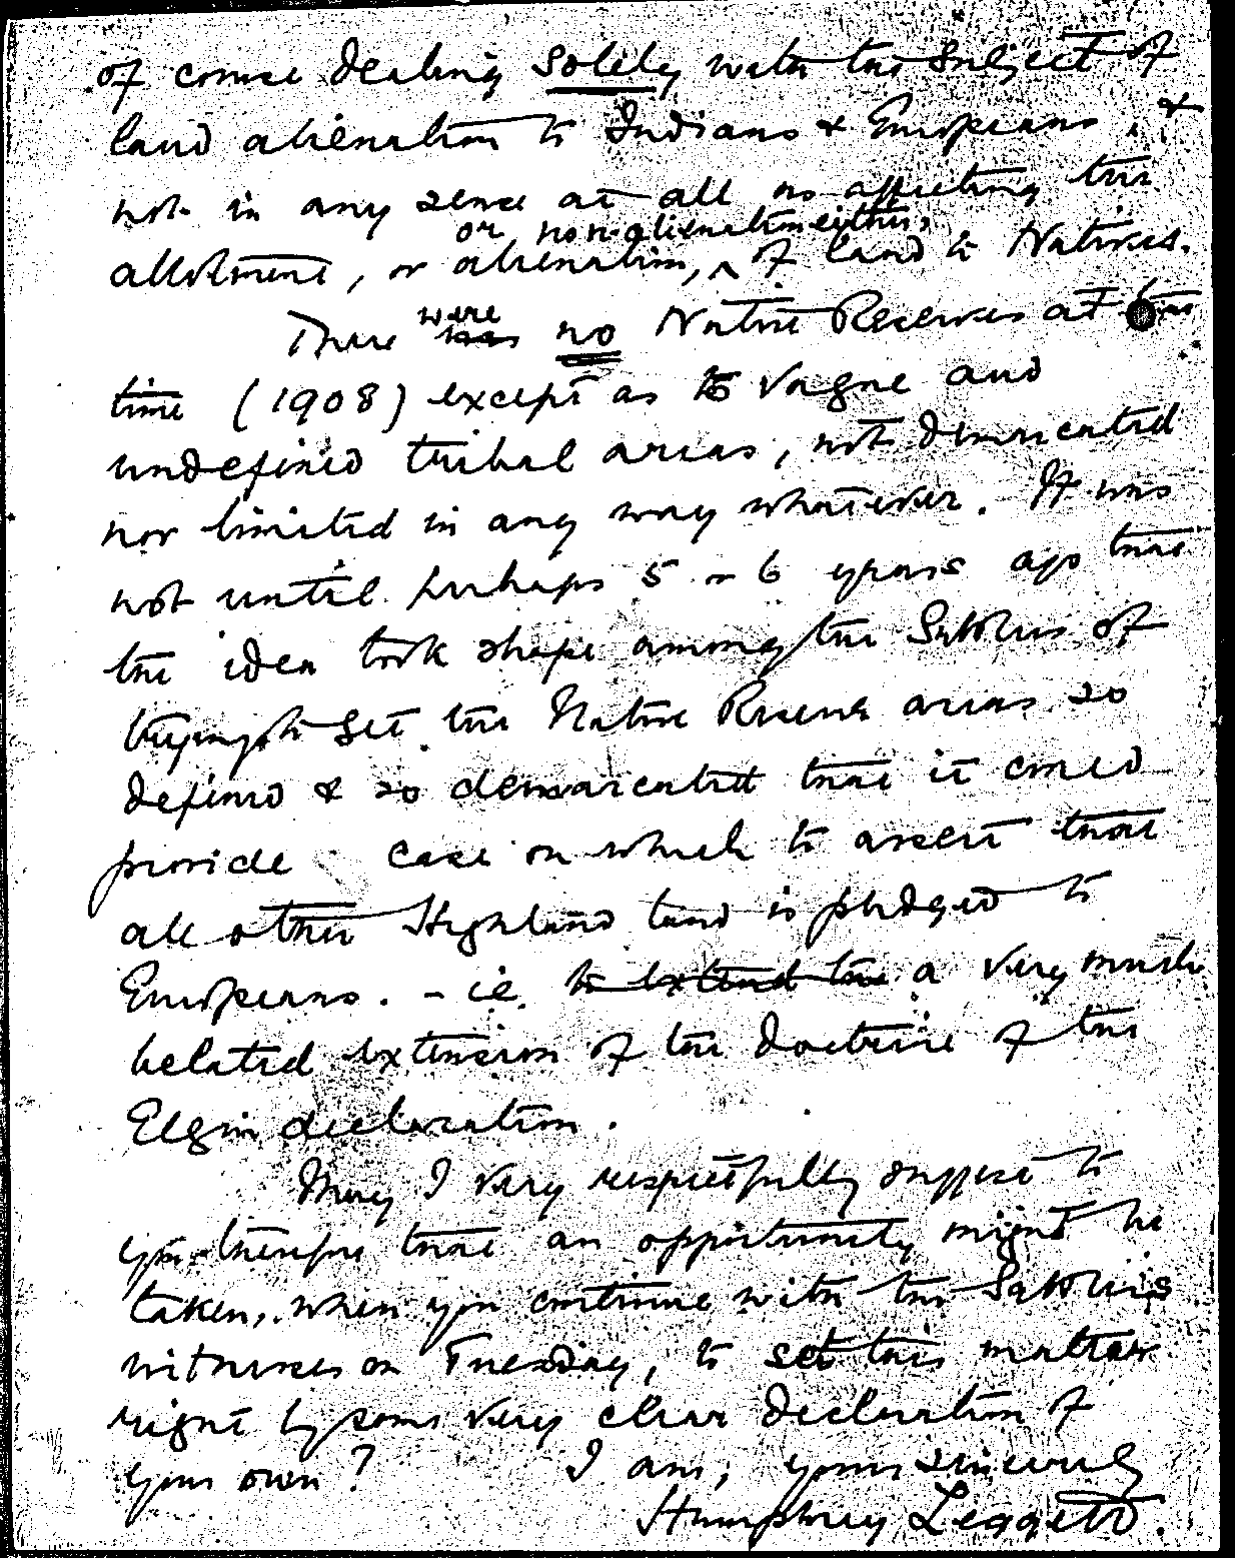 of course dealing solely with the subject of
land alienation to Indians & Europeans, &
not in any sense at all as affecting the
or non-alienation either,
allotment, or alienation, ^ of land to Natives.
were
There has no Native Reserves at the
time (1908) except as to vague and
undefined tribal areas, not demarcated
nor limited in any way whatever. It was
not until perhaps 5 or 6 years ago that
the idea took shape among the Settlers of
trying to get the Native Reserve areas so
defined & so demarcated that it could
provide case on which to assert that
all other Highland land is pledged to
Europeans. - i.e. to extend the a very much
belated extension of the doctrine of the
Elgin declaration.
May I very respectfully suggest to
you therefore that an opportunity might be
taken, when you continue with the Settlers
witnesses on Tuesday, to set this matter
right by some very clear declaration of
your own? I am, yours sincerely
Humphrey Leggett.